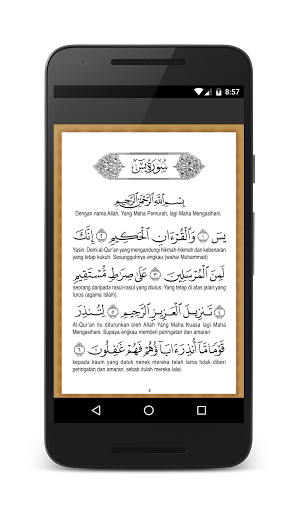 8:57
سُورَةُ يسٓ
بِسْمِ اللَّهِ الرَّحْمَٰنِ الرَّحِيمِ
Dengan nama Allah, Yang Maha Pemurah, lagi Maha Mengasihani.
يسٓ ١ وَالْقُرْءَانِ الْحَكِيمِ ٢ إِنَّكَ
Yasin. Demi al-Qur'an yang mengandungi hikmah-hikmah dan kebenaran
yang tetap kukuh. Sesungguhnya engkau (wahai Muhammad)
لَمِنَ الْمُرْسَلِينَ ٣ عَلَىٰ صِرَاطٍ مُّسْتَقِيمٍ
seorang daripada rasul-rasul yang diutus. Yang tetap di atas jalan yang
lurus (agama Islam).
٤ تَنزِيلَ الْعَزِيزِ الرَّحِيمِ ٥ لِتُنذِرَ
Al-Qur'an itu diturunkan oleh Allah Yang Maha Kuasa lagi Maha
Mengasihani. Supaya engkau memberi peringatan dan amaran
قَوْمًا مَّا أُنذِرَ ءَابَاؤُهُمْ فَهُمْ غَٰفِلُونَ ٦
kepada kaum yang datuk nenek mereka telah lama tidak diberi
peringatan dan amaran, sebab itulah mereka lalai.
2